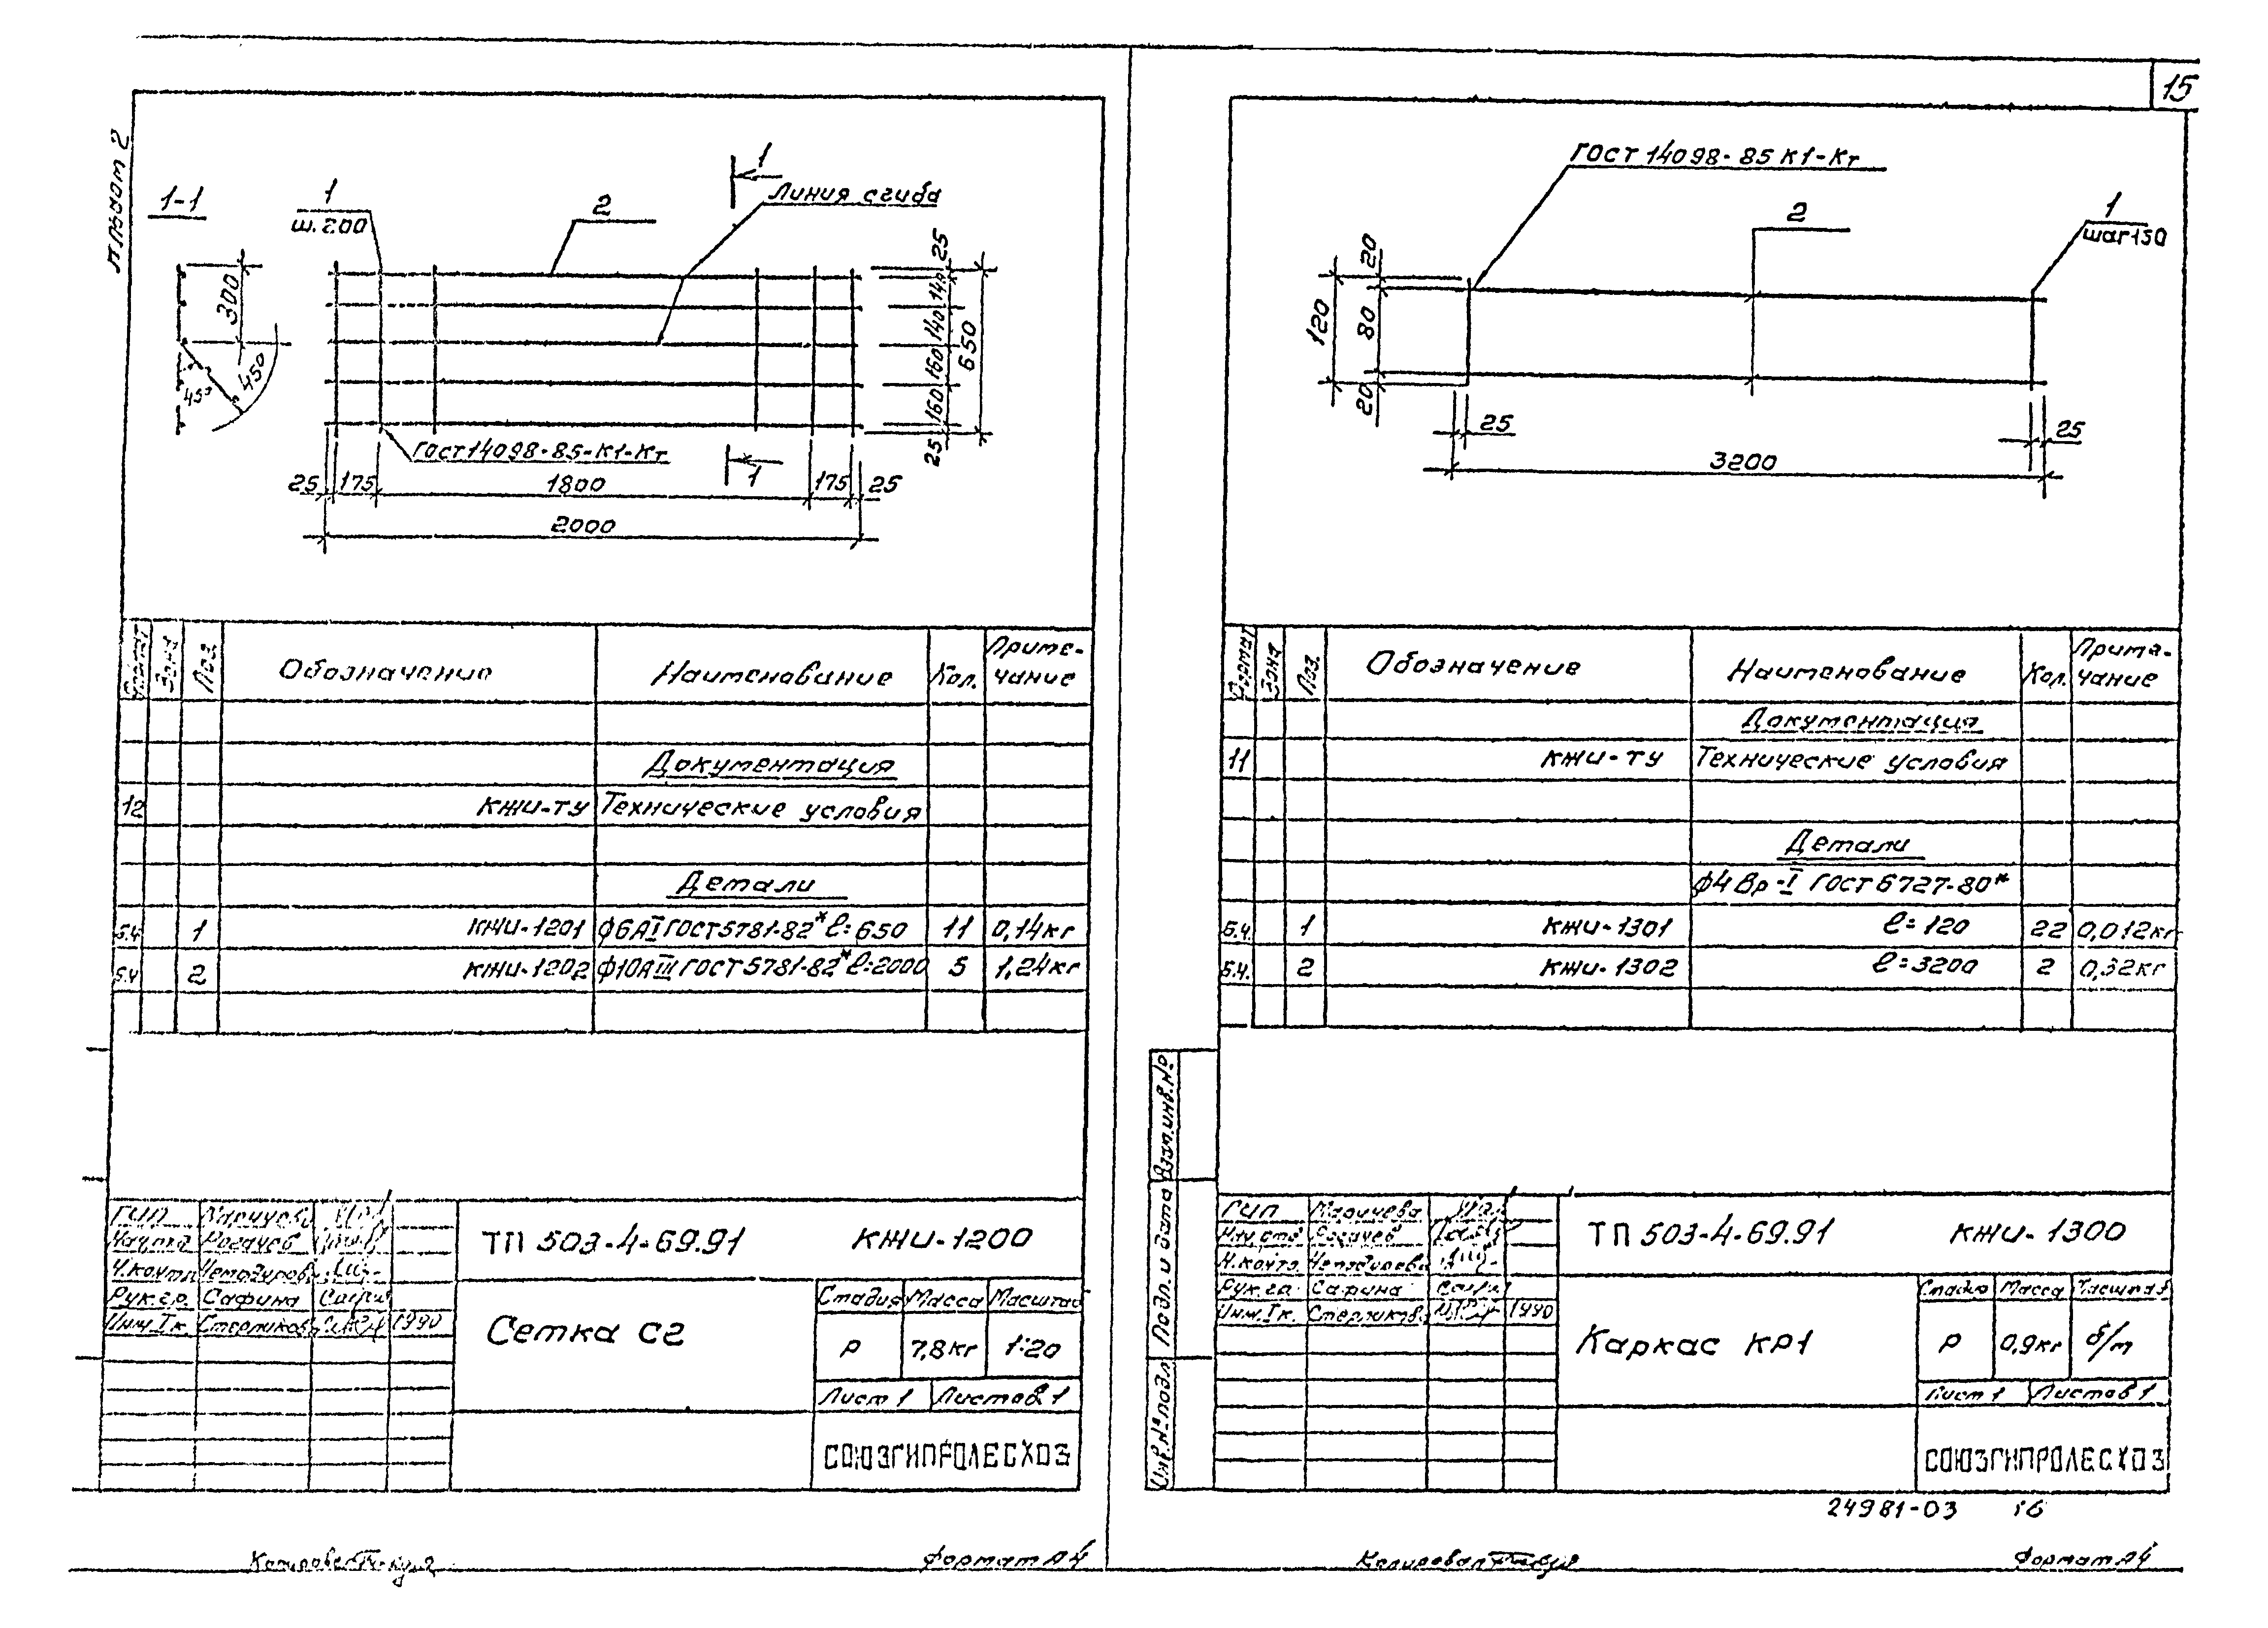 15
Альбом 2
1-1
1
ш.200
2
1
Линия сгиба
300
45°
45°
25
140
140
160
160
25
650
ГОСТ 14098-85-К1-Кт
1
25
175
1800
175
25
2000
Формат
Зона
Поз.
Обозначение
Наименование
Кол.
Приме-
чание
Документация
12
КЖИ-ТУ
Технические условия
Детали
Б.Ч.
1
КЖИ-1201
ф6АI ГОСТ 5781-82* ℓ=650
11
0,14кг
Б.Ч.
2
КЖИ-1202
ф10АIII ГОСТ 5781-82* ℓ=2000
5
1,24кг
ГИП
Нач.отд.
Рогачев
Н.контр.
Рук.гр.
Сафина
Инж.Iк.
1990
ТП 503-4-69.91
КЖИ-1200
Сетка С2
Стадия
Масса
Масштаб
Р
7,8кг
1:20
Лист 1
Листов 1
СОЮЗГИПРОЛЕСХОЗ
Копировал
Формат А4
ГОСТ 14098-85 К1-Кт
2
1
шаг 150
20
80
20
120
25
25
3200
Формат
Зона
Поз.
Обозначение
Наименование
Кол.
Приме-
чание
Документация
11
КЖИ-ТУ
Технические условия
Детали
ф4 Вр-I ГОСТ 6727-80*
Б.Ч.
1
КЖИ-1301
ℓ=120
22
0,012кг
Б.Ч.
2
КЖИ-1302
ℓ=3200
2
0,32кг
Взам.инв.№
Подп. и дата
Инв.№ подл
ГИП
Маричева
Нач.отд.
Рогачев
Н.контр.
Рук.гр.
Сафина
Инж.Iк.
1990
ТП 503-4-69.91
КЖИ-1300
Каркас КР1
Стадия
Масса
Масштаб
Р
0,9кг
б/м
Лист 1
Листов 1
СОЮЗГИПРОЛЕСХОЗ
24981-03
16
Копировал
Формат А4